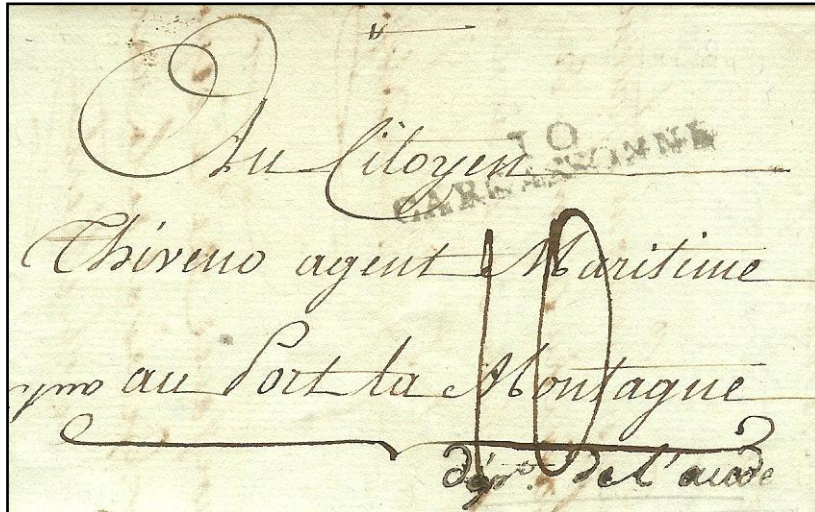 10
CARCASSONNE
Au Citoyen
Thiveno agent Maritime
au Port la Montagne
10
dépt. de l'aude